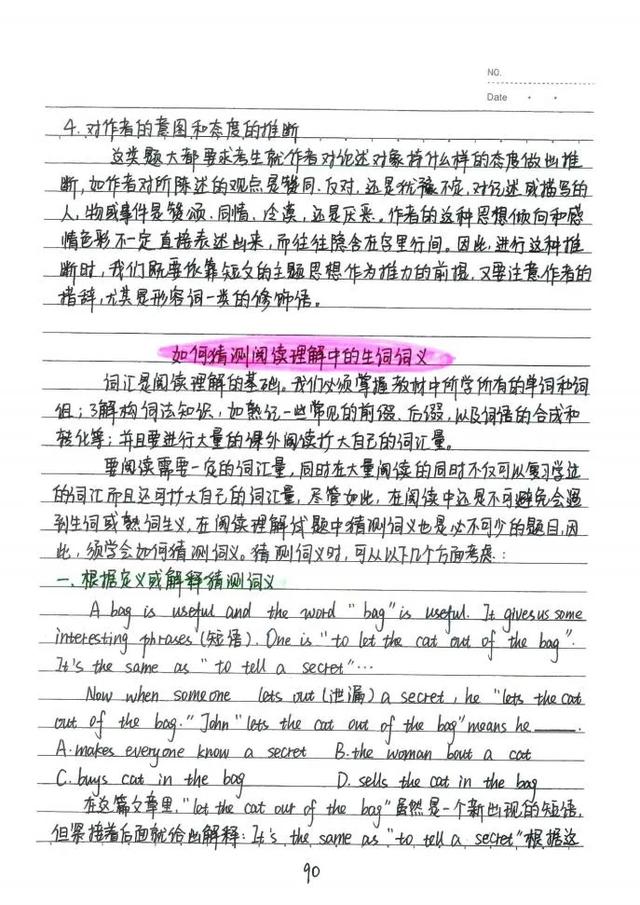 NO.
Date
4. 对作者的意图和态度的推断
这类题大都要求考生就作者对论述对象持什么样的态度做出推
断,如作者对所陈述的观点是赞同、反对,还是犹豫不定,对记述或描写的
人,物或事件是赞颂、同情、冷漠,还是厌恶。作者的这种思想倾向和感
情色彩不一定直接表述出来,而往往隐含在字里行间。因此,进行这种推
断时,我们既要依靠短文的主题思想作为推力的前提,又要注意作者的
措辞,尤其是形容词一类的修饰语。
如何猜测阅读理解中的生词词义
词汇是阅读理解的基础。我们必须掌握教材中所学所有的单词和词
组;了解构词法知识,如熟记一些常见的前缀、后缀,以及词语的合成和
转化等;并且要进行大量的课外阅读扩大自己的词汇量。
要阅读需要一定的词汇量,同时在大量阅读的同时不仅可以复习学过
的词汇而且还可扩大自己的词汇量,尽管如此,在阅读中还是不可避免会遇
到生词或熟词生义,在阅读理解试题中猜测词义也是必不可少的题目,因
此,须学会如何猜测词义。猜测词义时,可从以下几个方面考虑:
一、根据定义或解释猜测词义
A bag is useful and the word "bag" is useful. It gives us some
interesting phrases (短语). One is "to let the cat out of the bag".
It's the same as "to tell a secret"...
Now when someone lets out (泄漏) a secret, he "lets the cat
out of the bag." John "lets the cat out of the bag" means he ____.
A. makes everyone know a secret B. the woman bout a cat
C. buys cat in the bag D. sells the cat in the bag
在这篇文章里,"let the cat out of the bag"虽然是一个新出现的短语,
但紧接着后面就给出解释: It's the same as "to tell a secret"根据这
90